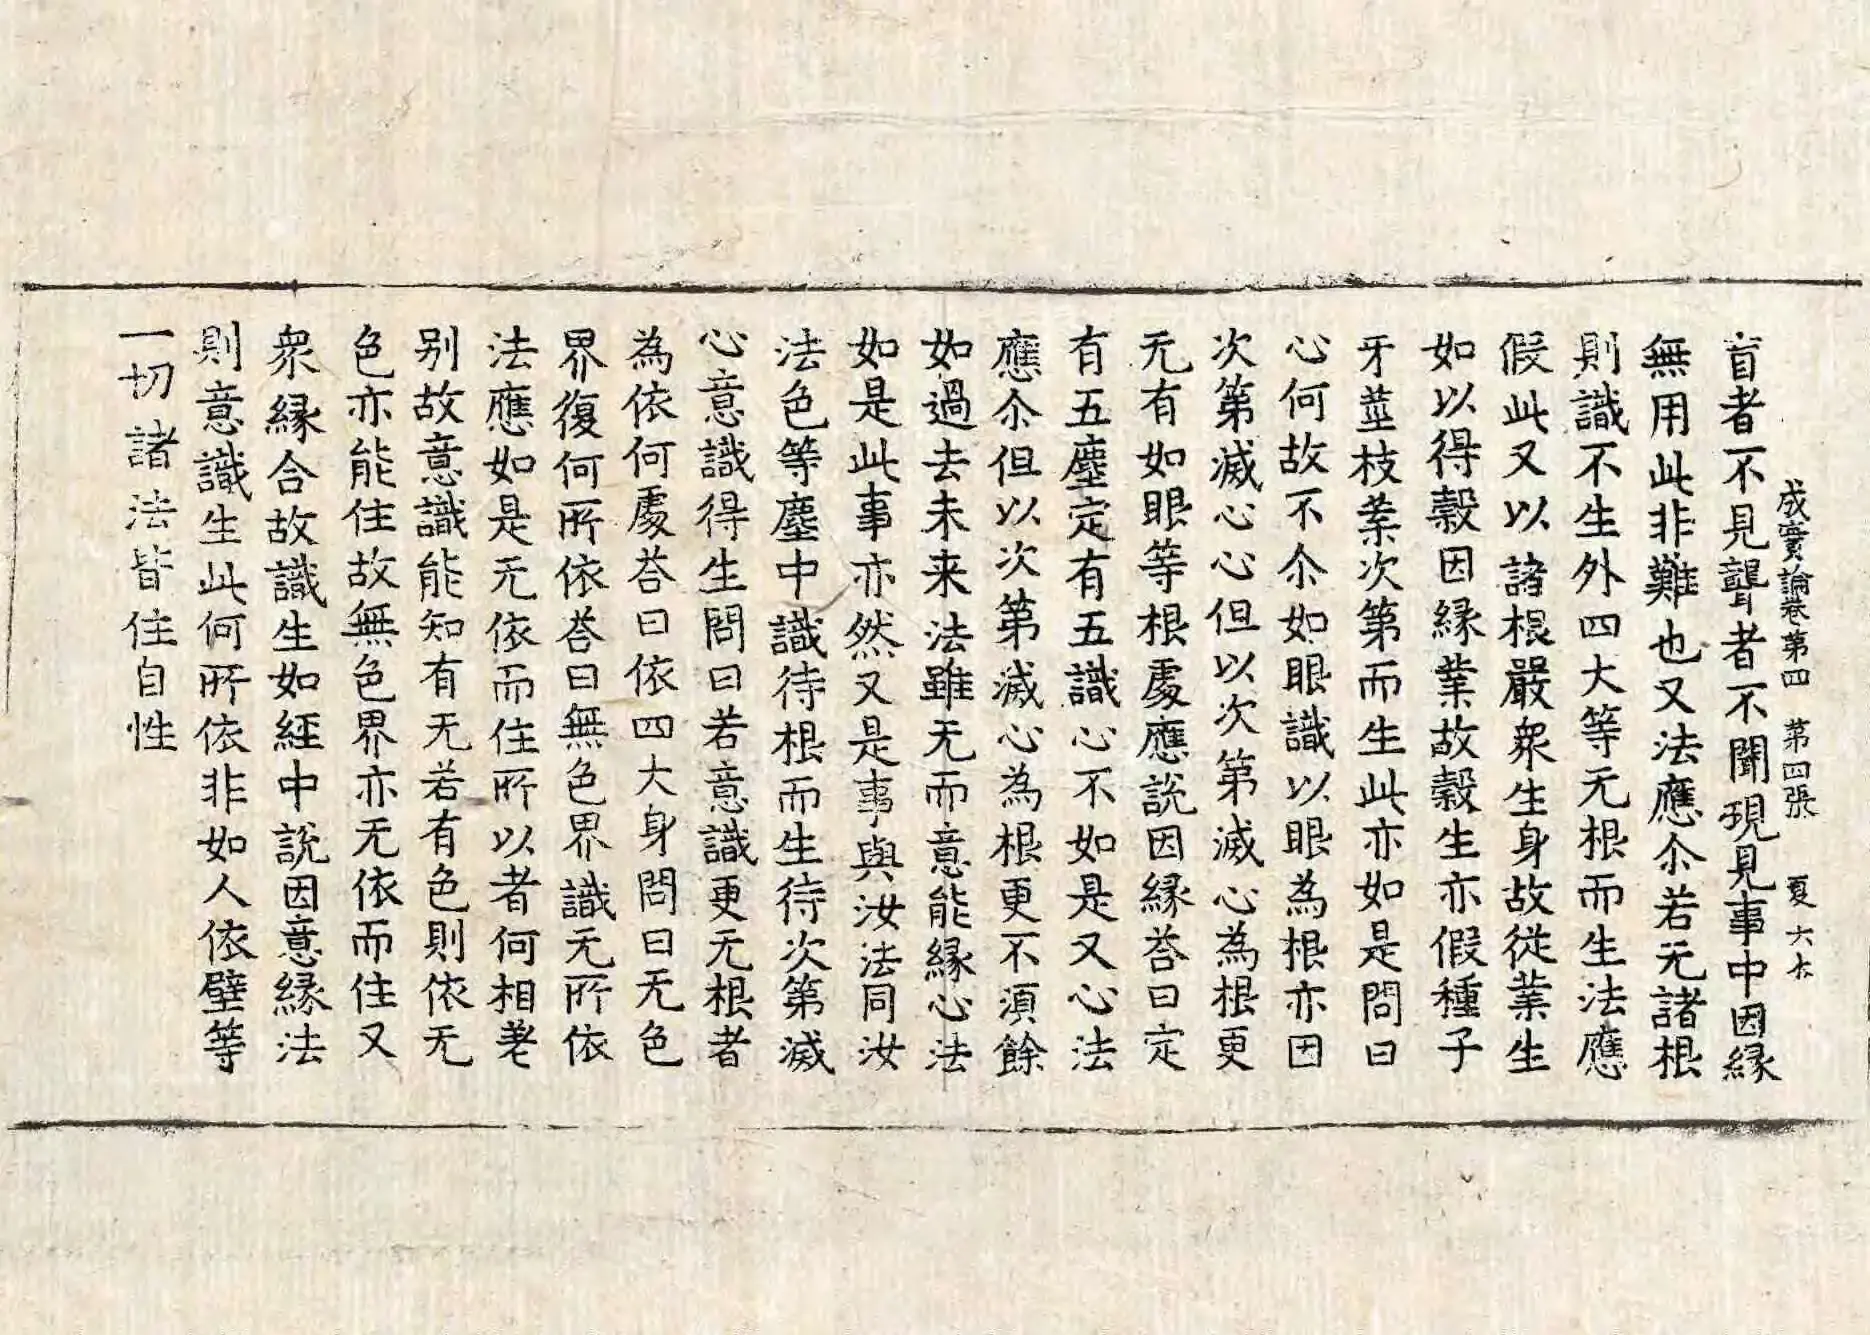 成實論卷第四　第四張　夏
盲者不見聾者不聞現見事中因緣
無用此非難也又法應尒若无諸根
則識不生外四大等无根而生法應
假此又以諸根嚴衆生身故從業生
如以得穀因緣業故穀生亦假種子
牙莖枝葉次第而生此亦如是問曰
心何故不尒如眼識以眼為根亦因
次第滅心心但以次第滅心為根更
无有如眼等根處應說因緣荅曰定
有五塵定有五識心不如是又心法
應尒但以次第滅心為根更不須餘
如過去未来法雖无而意能緣心法
如是此事亦然又是事與汝法同汝
法色等塵中識待根而生待次第滅
心意識得生問曰若意識更无根者
為依何處荅曰依四大身問曰无色
界復何所依荅曰無色界識无所依
法應如是无依而住所以者何相差
别故意識能知有无若有色則依无
色亦能住故無色界亦无依而住又
衆緣合故識生如經中說因意緣法
則意識生此何所依非如人依壁等
一切諸法皆住自性